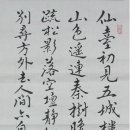 仙臺初見五城樓
山色遥連秦樹晚
疏松影落空壇静
別尋方外去人間亦自